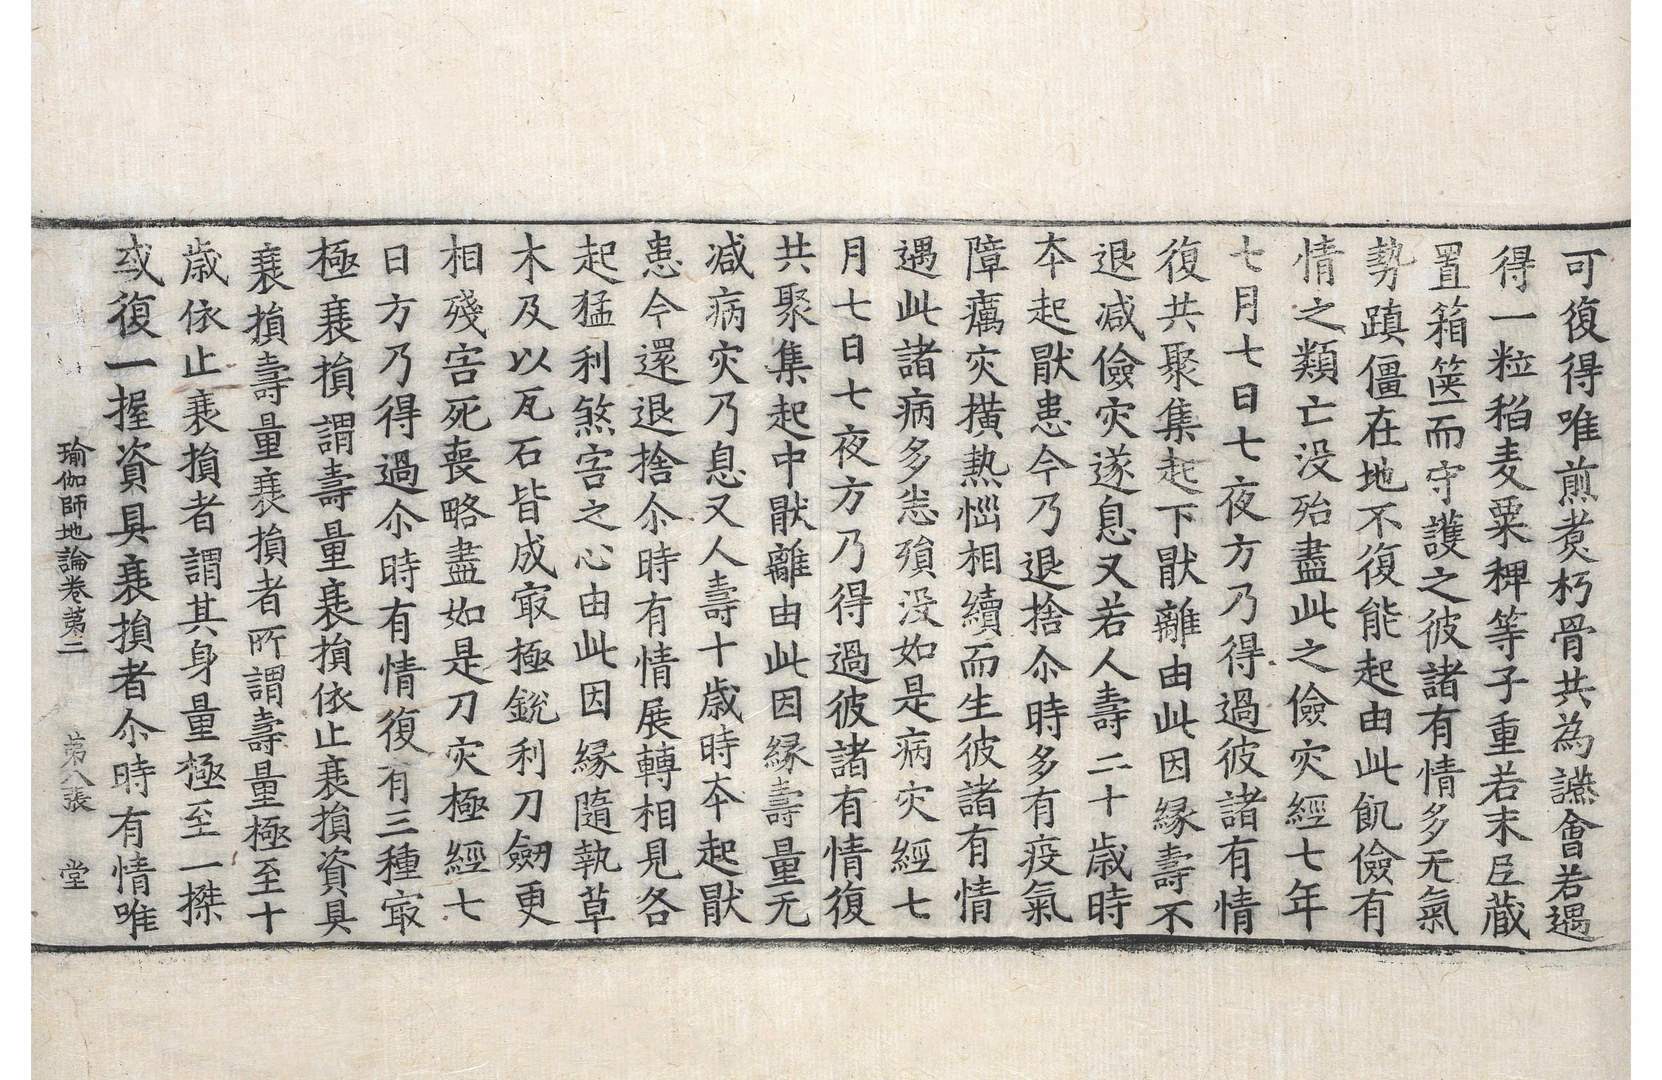 可復得唯煎煑朽骨共為讌會若遇
得一粒稻麦粟稗等子重若末尼蔵
置箱篋而守護之彼諸有情多无氣
勢蹎僵在地不復能起由此飢儉有
情之類亡没殆盡此之儉灾經七年
七月七日七夜方乃得過彼諸有情
復共聚集起下猒離由此因縁壽不
退减儉灾遂息又若人壽二十歳時
夲起猒患今乃退捨尒時多有疫氣
障癘灾横熱惱相續而生彼諸有情
遇此諸病多悉殞没如是病灾經七
月七日七夜方乃得過彼諸有情復
共聚集起中猒離由此因縁壽量无
减病灾乃息又人壽十歳時夲起猒
患今還退捨尒時有情展轉相見各
起猛利煞害之心由此因縁隨執草
木及以瓦石皆成㝡極銳利刀劒更
相殘害死喪略盡如是刀灾極經七
日方乃得過尒時有情復有三種㝡
極衰損謂壽量衰損依止衰損資具
衰損壽量衰損者所謂壽量極至十
歳依止衰損者謂其身量極至一搩
或復一握資具衰損者尒時有情唯
瑜伽師地論卷苐二 苐八張 堂